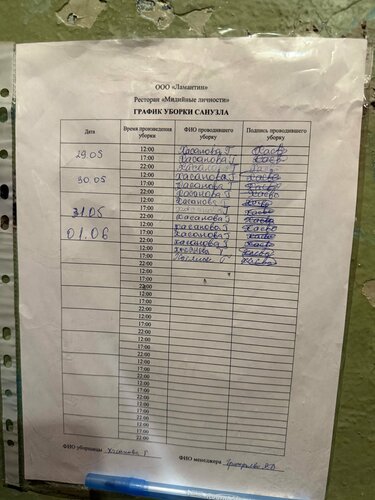 ООО «Ламантин»
Ресторан «Мидийные личности»
ГРАФИК УБОРКИ САНУЗЛА
Дата Время произведения уборки ФИО проводившего уборку Подпись проводившего уборку
29.05 12:00 Хасанова Г Хасво
17:00 Хасанова Г Хасво
22:00
30.05 12:00 Хасанова Г Хасво
17:00 Хасанова Г Хасво
22:00 Хасанова Г Хасво
31.05 12:00 Хасанова Г Хасво
17:00
22:00 Хасанова Г Хасво
01.06 12:00 Хасанова Г Хасво
17:00 Хасанова Г Хасво
22:00 Хасанова Г Хасво
12:00 Г Хасво
17:00 Г Хасво
22:00
12:00
17:00
22:00
12:00
17:00
22:00
12:00
17:00
22:00
12:00
17:00
22:00
12:00
17:00
22:00
12:00
17:00
22:00
12:00
17:00
22:00
ФИО уборщицы Хасанова Г. ФИО менеджера